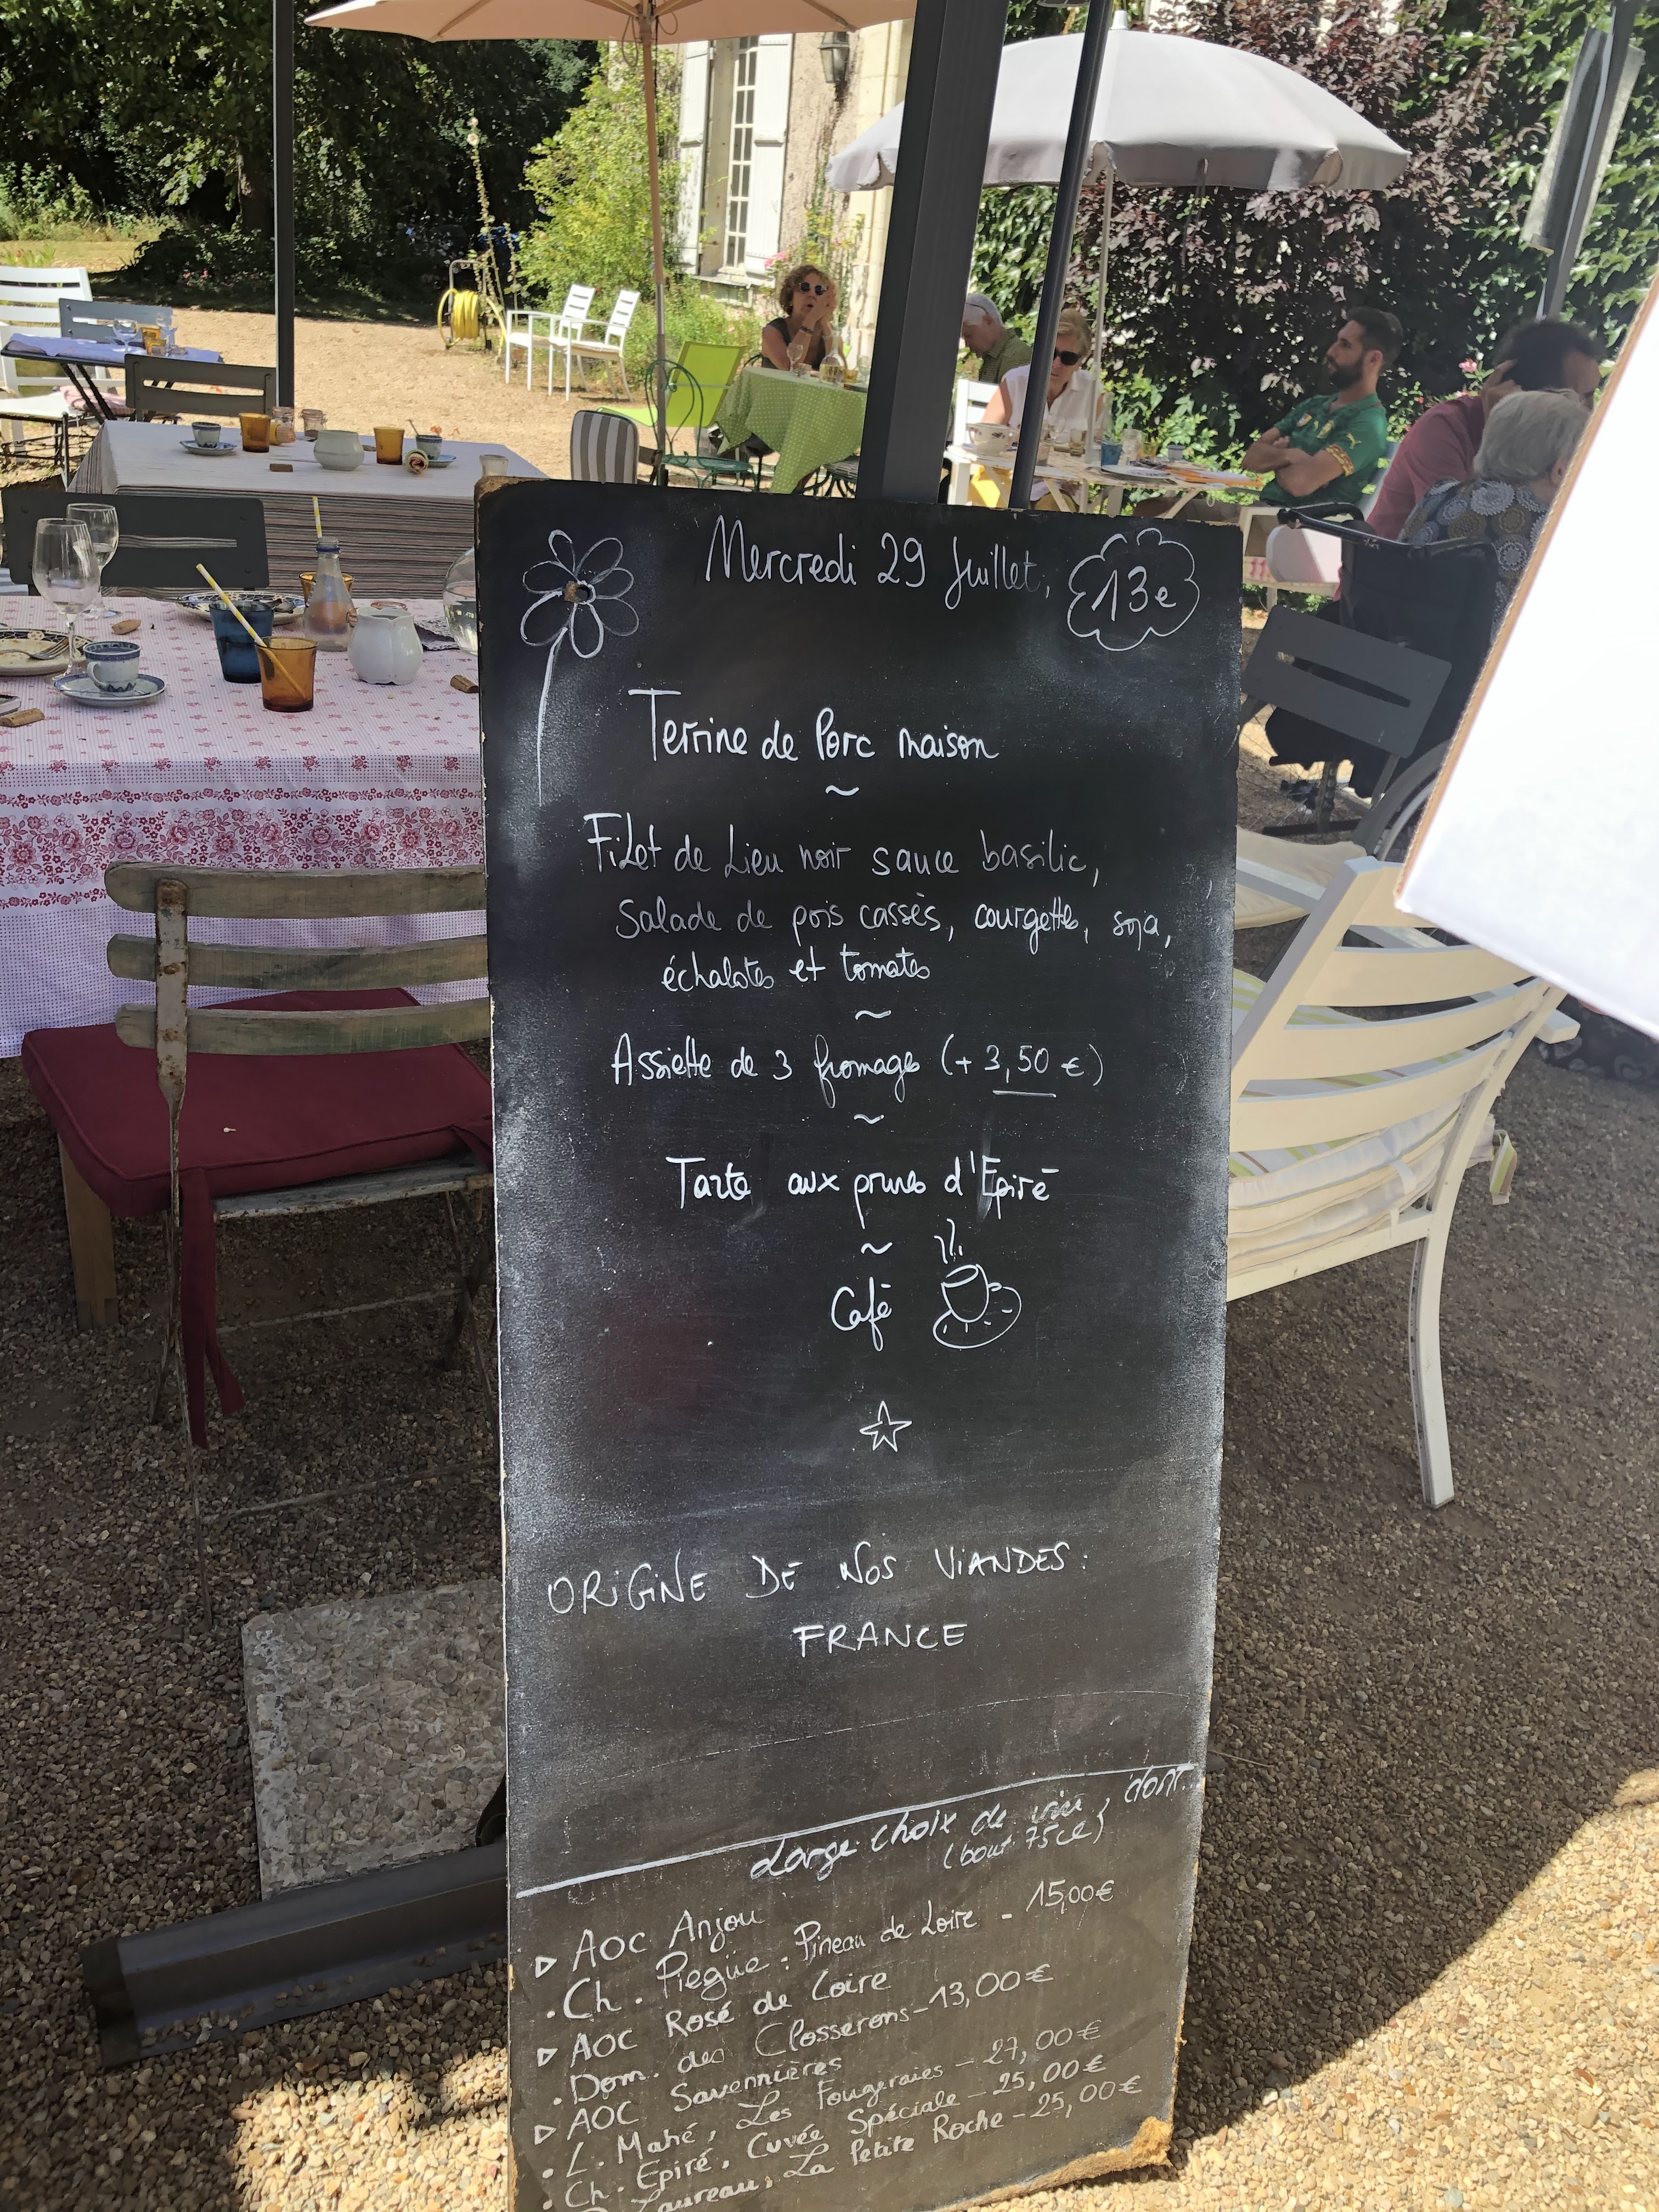 Mercredi 29 Juillet, 13e
Terrine de Porc maison
~
Filet de Lieu noir sauce basilic,
Salade de pois cassés, courgettes, soja,
échalotes et tomates
~
Assiette de 3 fromages (+ 3,50 €)
~
Tarte aux prunes d'Epiré
~
Café
ORIGINE DE NOS VIANDES:
FRANCE
Large choix de vin, dont
(bout 75cl)
AOC Anjou
. Ch. Piegüe: Pineau de Loire - 15,00€
AOC Rosé de Loire
. Dom. des Closserons - 13,00€
AOC Savennières
. L. Mahé, Les Fougeraies - 27,00€
. Ch. Epiré, Cuvée Spéciale - 25,00€
Laureau, La Petite Roche - 25,00€